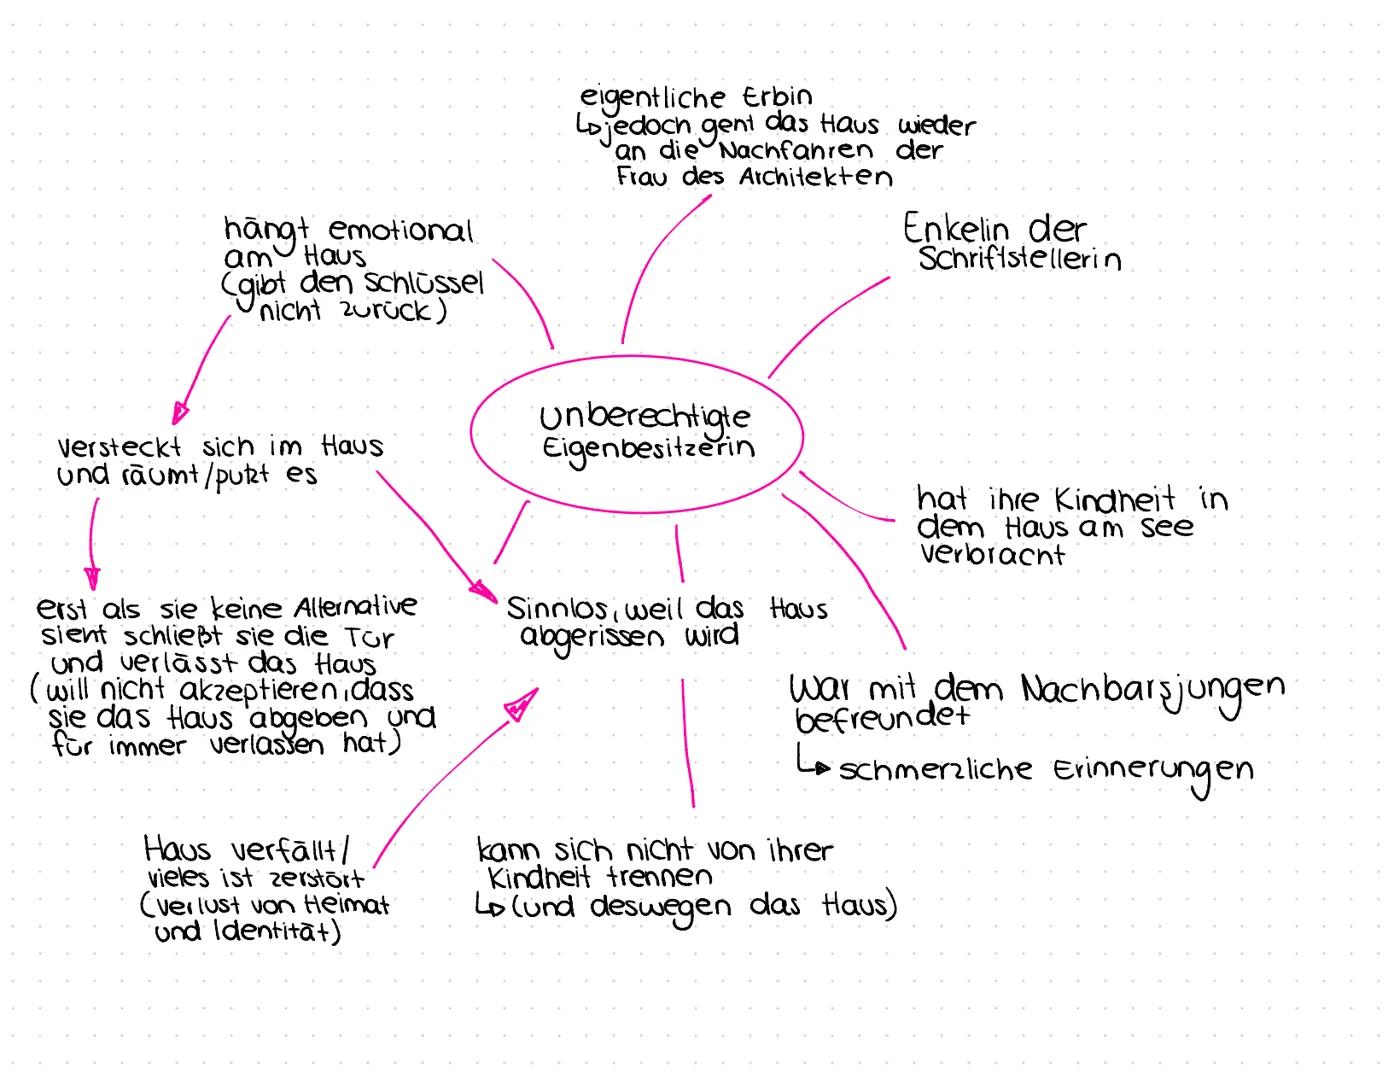 eigentliche Erbin
↳ jedoch geht das Haus wieder
an die Nachfahren der
Frau des Architekten
hängt emotional
am Haus
(gibt den Schlüssel
nicht zurück)
Enkelin der
Schriftstellerin
unberechtigte
Eigenbesitzerin
versteckt sich im Haus
und räumt/putzt es
hat ihre Kindheit in
dem Haus am See
verbracht
erst als sie keine Alternative
sieht schließt sie die Tür
und verlässt das Haus
(will nicht akzeptieren, dass
sie das Haus abgeben und
für immer verlassen hat)
Sinnlos, weil das Haus
abgerissen wird
War mit dem Nachbarsjungen
befreundet
↳ schmerzliche Erinnerungen
Haus verfällt/
vieles ist zerstört
(Verlust von Heimat
und Identität)
kann sich nicht von ihrer
Kindheit trennen
↳ (und deswegen das Haus)